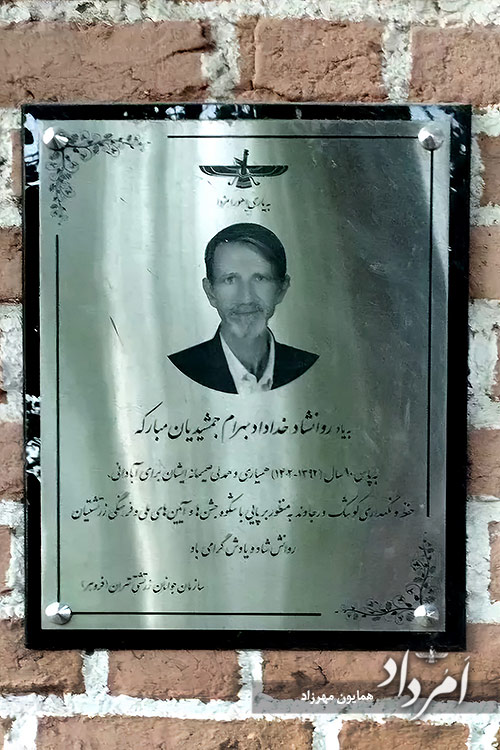 به یاری اهورامزدا
به یاد روانشاد خداداد بهرام جمشیدیان مبارکه
به پاس ۱۰ سال (۱۳۹۲-۱۴۰۲) همیاری و همدلی صمیمانه ایشان برای آبادانی،
حفظ و نگهداری کوشک ورجاوند به منظور برپایی با شکوه جشن‌ها و آیین‌های ملی و فرهنگی زرتشتیان
روانش شاد و یادش گرامی باد
سازمان جوانان زرتشتی تهران (فروهر)
اَمرداد
همایون مهرزاد